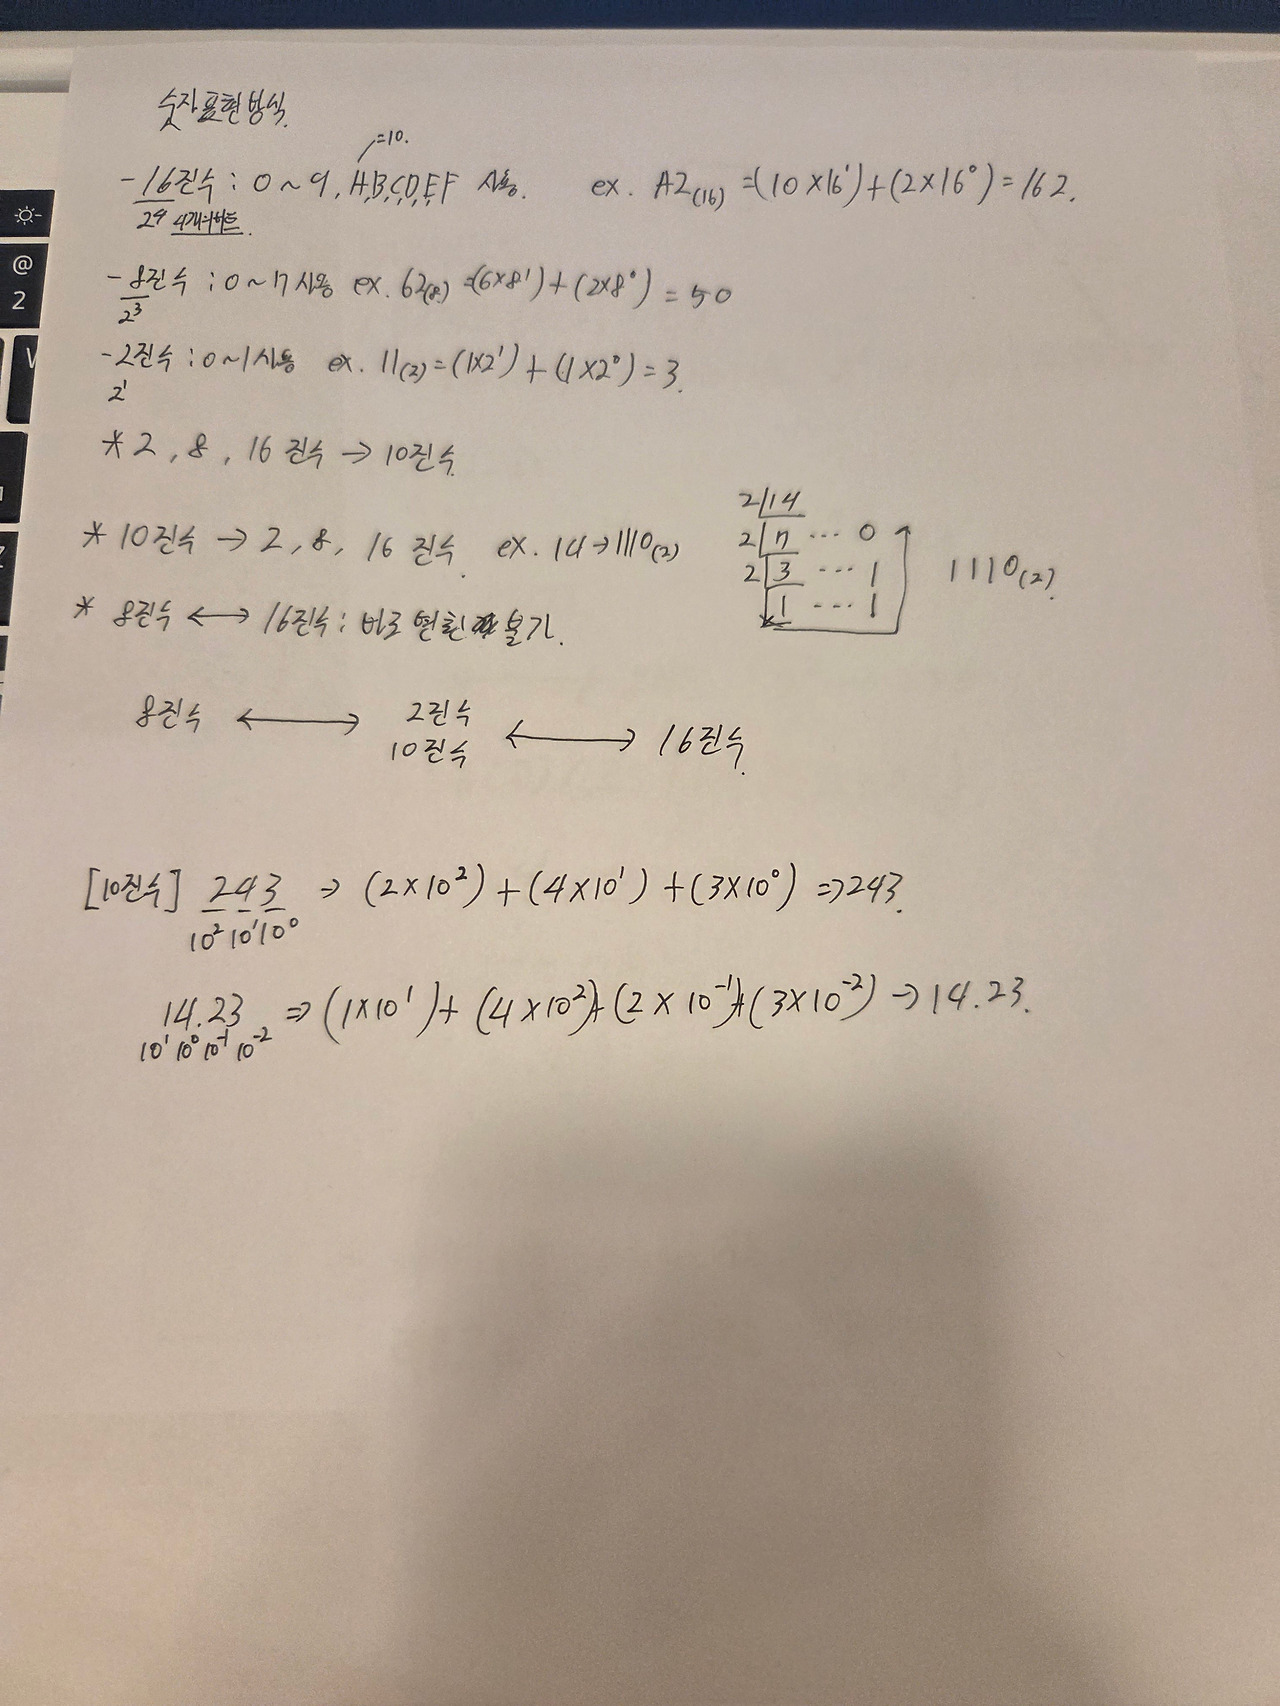 숫자 표현 방식.
=10.
- 16진수 : 0 ~ 9, A,B,C,D,E,F 사용. ex. A2(16) =(10×16¹)+(2×16⁰)=162.
2⁴ 4개의 비트.
- 8진수 : 0 ~ 7 사용 ex. 62(8) =(6×8¹)+(2×8⁰) = 50
2³
- 2진수 : 0 ~ 1 사용 ex. 11(2) = (1×2¹) + (1×2⁰) = 3.
2¹
* 2, 8, 16 진수 → 10진수.
* 10진수 → 2, 8, 16 진수. ex. 14→1110(2)
2|14
2|7 ··· 0
2|3 ··· 1
1 ··· 1
1110(2).
* 8진수 ↔ 16진수 : 바로 변환 불가.
8진수 ↔ 2진수
10진수 ↔ 16진수.
[10진수] 243 ⇒ (2×10²) + (4×10¹) + (3×10⁰) ⇒ 243.
10² 10¹ 10⁰
14.23 ⇒ (1×10¹)+ (4×10²)+(2×10⁻¹)+(3×10⁻²) → 14.23.
10¹ 10⁰ 10⁻¹ 10⁻²
@
2